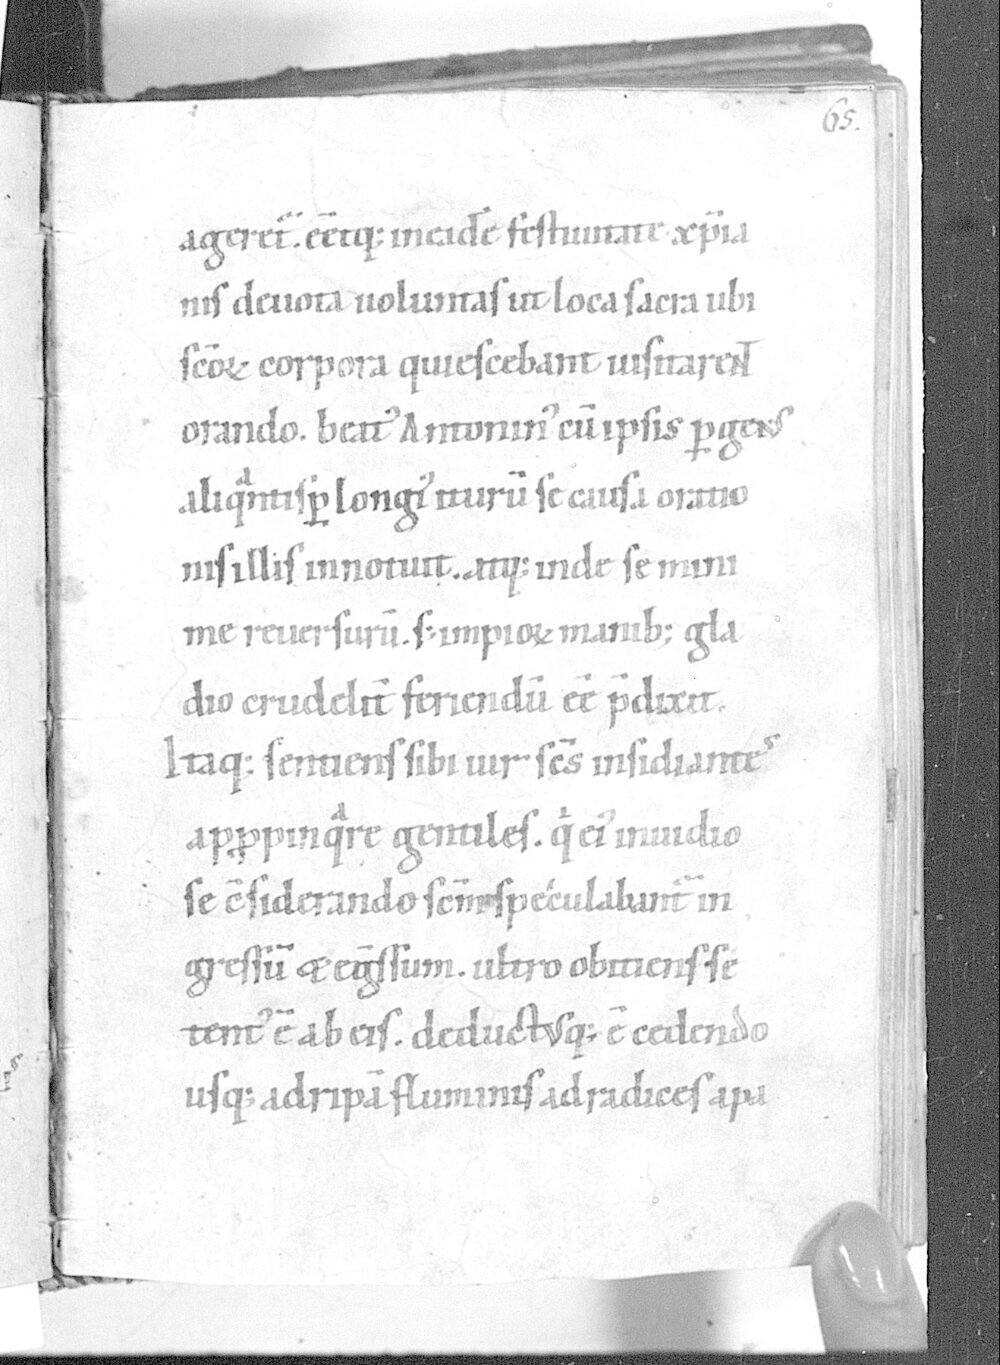 65.
ageret᷑. eēt q; incidē festiuitate xp̄ia
nis deuota uoluntas ut loca sacra ubi
scōꝝ corpora quiescebant uisitarent
orando. beatꝰ Antoninꝰ cū ipsis ꝑgens
aliqͣntisꝑ longiꝰ iturū se causa oratio
nis illis innotuit. atq; inde se mini
me reuersurū. s; impioꝝ manib; gla
dio crudelit̄ feriendū eē p̄dixit.
Itaq; sentiens sibi uir scs̄ insidiantes
aꝓpinqͣre gentiles. qͥ eiꝰ inuidio
se c̄siderando scm̄ speculabant᷑ in
gressū & eḡssum. ultro obuiens se
tentꝰ ē ab eis. deductusq; ē cedendo
usq; ad ripā fluminis ad radices apa